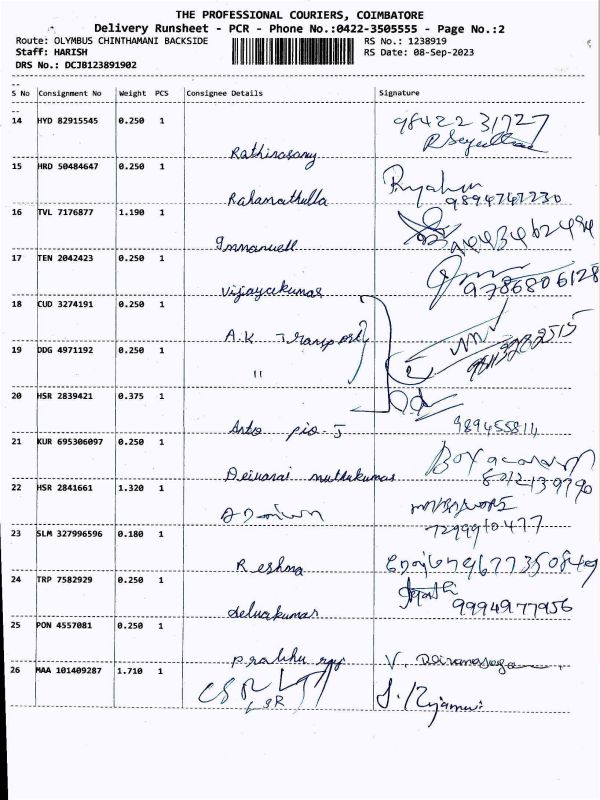 THE PROFESSIONAL COURIERS, COIMBATORE
Delivery Runsheet - PCR - Phone No.:0422-3505555 - Page No.:2
Route: OLYMBUS CHINTHAMANI BACKSIDE RS No.: 1238919
Staff: HARISH RS Date: 08-Sep-2023
DRS No.: DCJB123891902
S No Consignment No Weight PCS Consignee Details Signature
14 HYD 82915545 0.250 1 9842231727
Rathinasamy
15 HRD 50484647 0.250 1
Rahamathulla 9894747230
16 TVL 7176877 1.190 1
Immanuell
17 TEN 2042423 0.250 1
Vijayakumar 9786806128
18 CUD 3274191 0.250 1
A.K Transport
19 DDG 4971192 0.250 1
"
20 HSR 2839421 0.375 1
Anto pio-J
21 KUR 695306097 0.250 1
Deivarai muthukumar
22 HSR 2841661 1.320 1
23 SLM 327996596 0.180 1
Reshma
24 TRP 7582929 0.250 1
Selvakumar 9994977956
25 PON 4557081 0.250 1
Prabhu raj
26 MAA 101409287 1.710 1